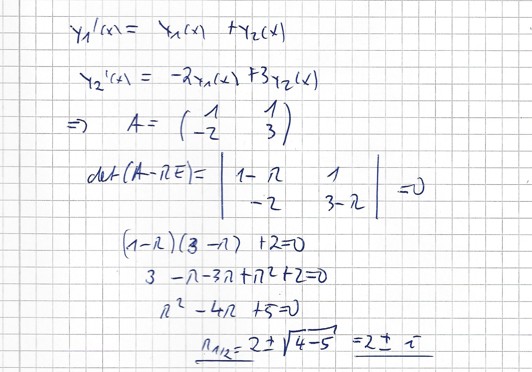 y₁'(x) = y₁(x) + y₂(x)
y₂'(x) = -2y₁(x) + 3y₂(x)
⇒ A = ( 1 1
-2 3 )
det(A-λE) = | 1-λ 1
-2 3-λ | = 0
(1-λ)(3-λ) + 2 = 0
3 - λ - 3λ + λ² + 2 = 0
λ² - 4λ + 5 = 0
λ₁/₂ = 2 ± √(4-5) = 2 ± i